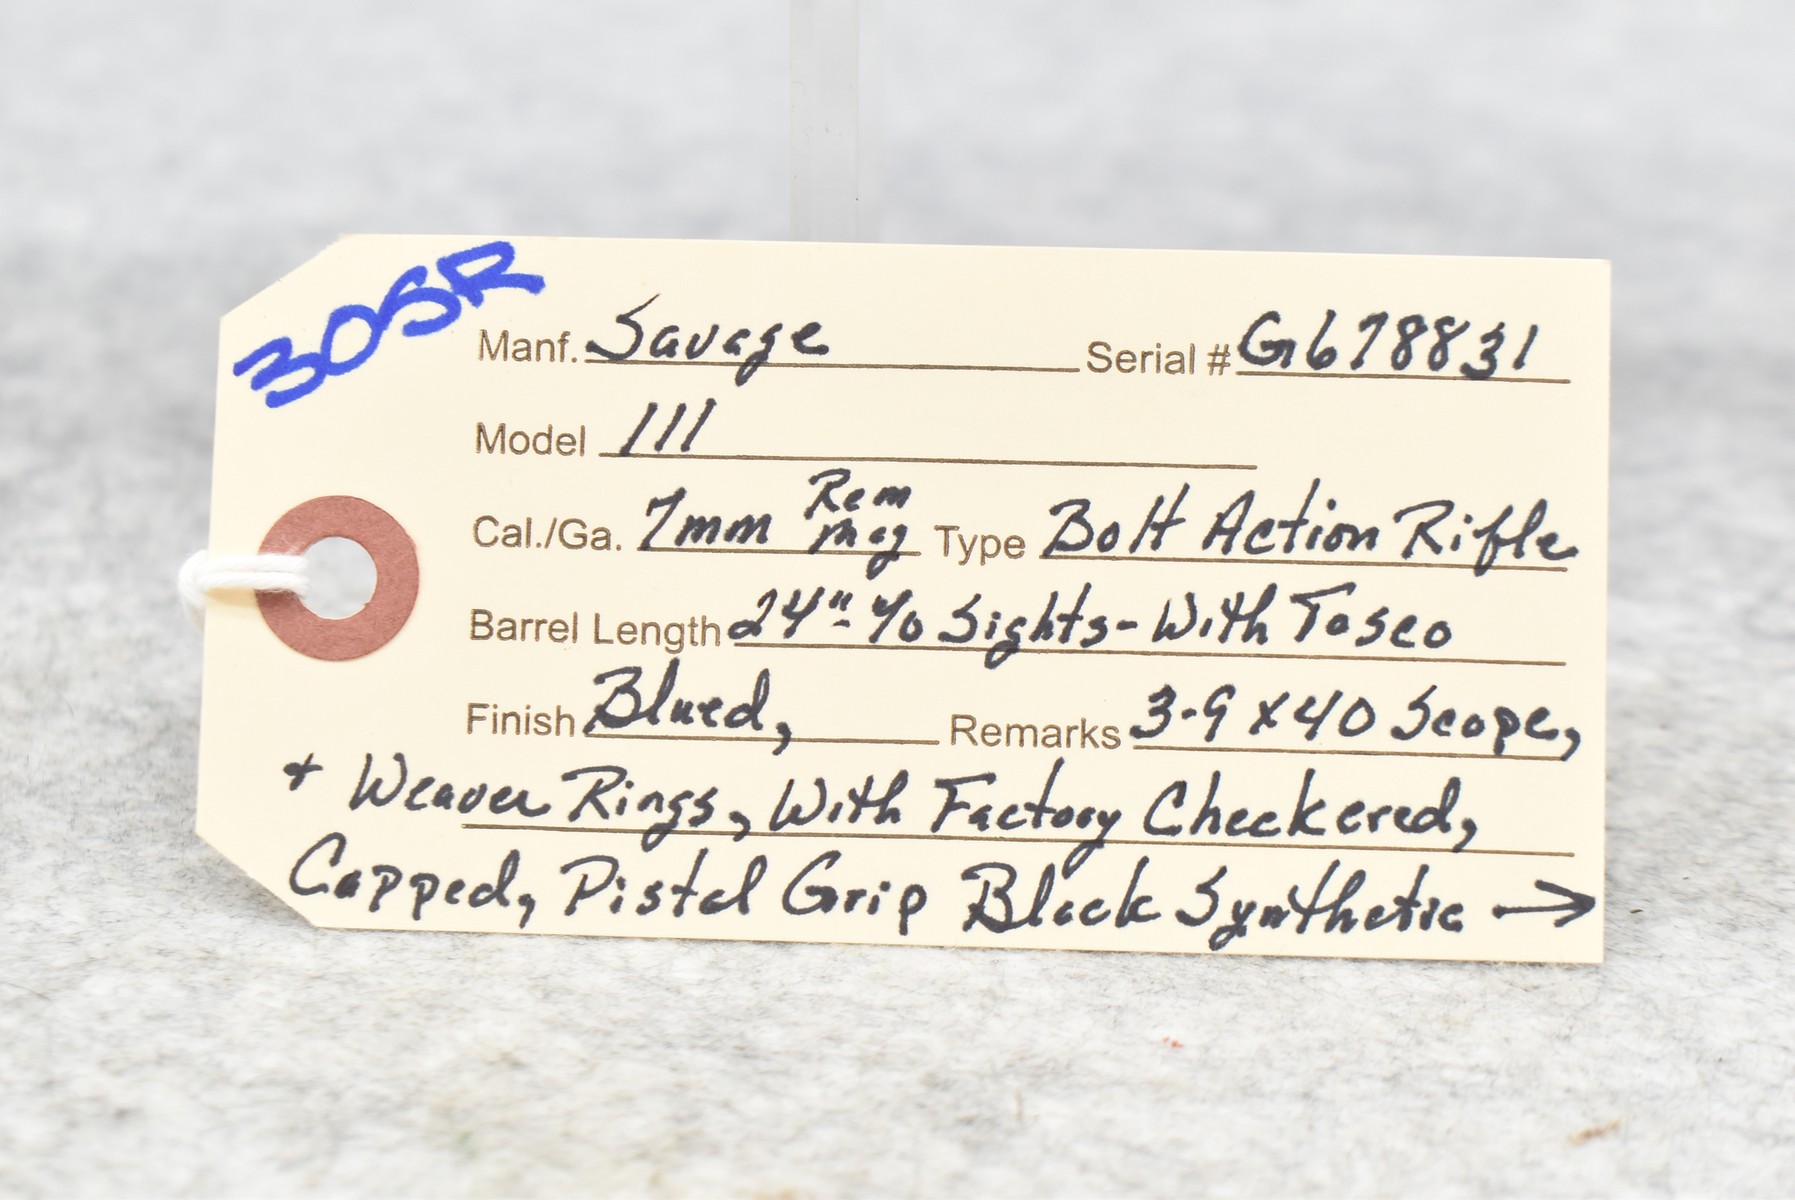 30SR
Manf. Savage Serial # G678831
Model 111
Cal./Ga. 7mm Rem Mag Type Bolt Action Rifle
Barrel Length 24"- w/o Sights-With Tasco
Finish Blued, Remarks 3-9x40 Scope,
+ Weaver Rings, With Factory Checkered,
Capped, Pistol Grip Black Synthetic →